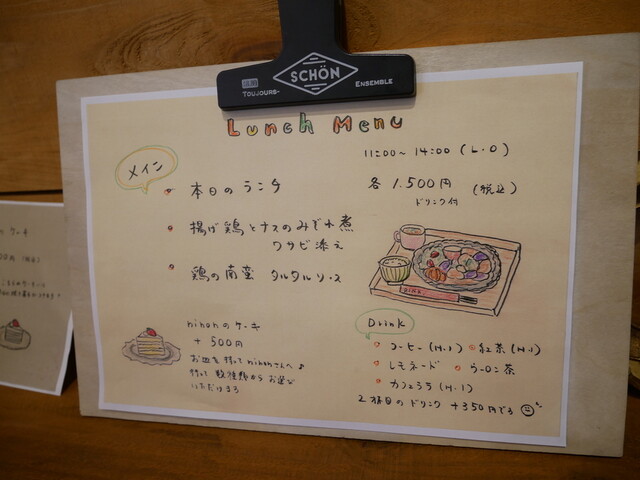 SCHÖN
TOUJOURS- ENSEMBLE
Lunch Menu
11:00~14:00 (L.O)
メイン
各 1.500円 (税込)
ドリンク付
本日のランチ
揚げ鶏とナスのみぞれ煮
ワサビ添え
鶏の南蛮 タルタルソース
ninonのケーキ
+500円
お皿を持ってninonさんへ♪
数種類からお選び
いただけます
Drink
コーヒー(H.I) 紅茶(H.I)
レモネード ウーロン茶
カフェラテ(H.I)
2杯目のドリンク +350円です